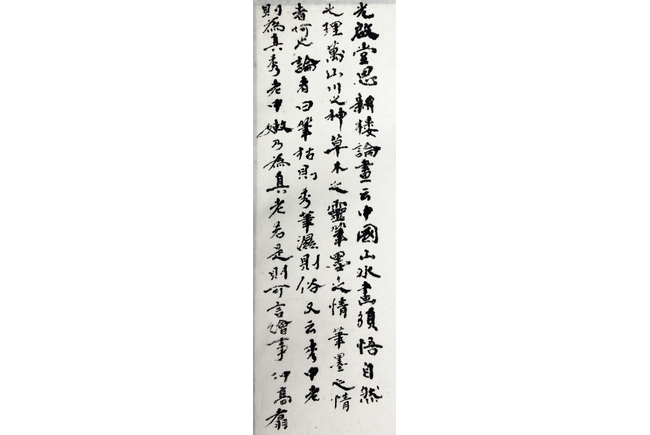 光啟堂思耕楼論畫云中國山水畫須悟自然
之理山川之神草木之靈筆墨之情筆墨之情
者何也論者曰筆枯則秀筆濕則俗又云秀中老
則為真秀老中嫩乃為真老若是則可言繪事 仲高